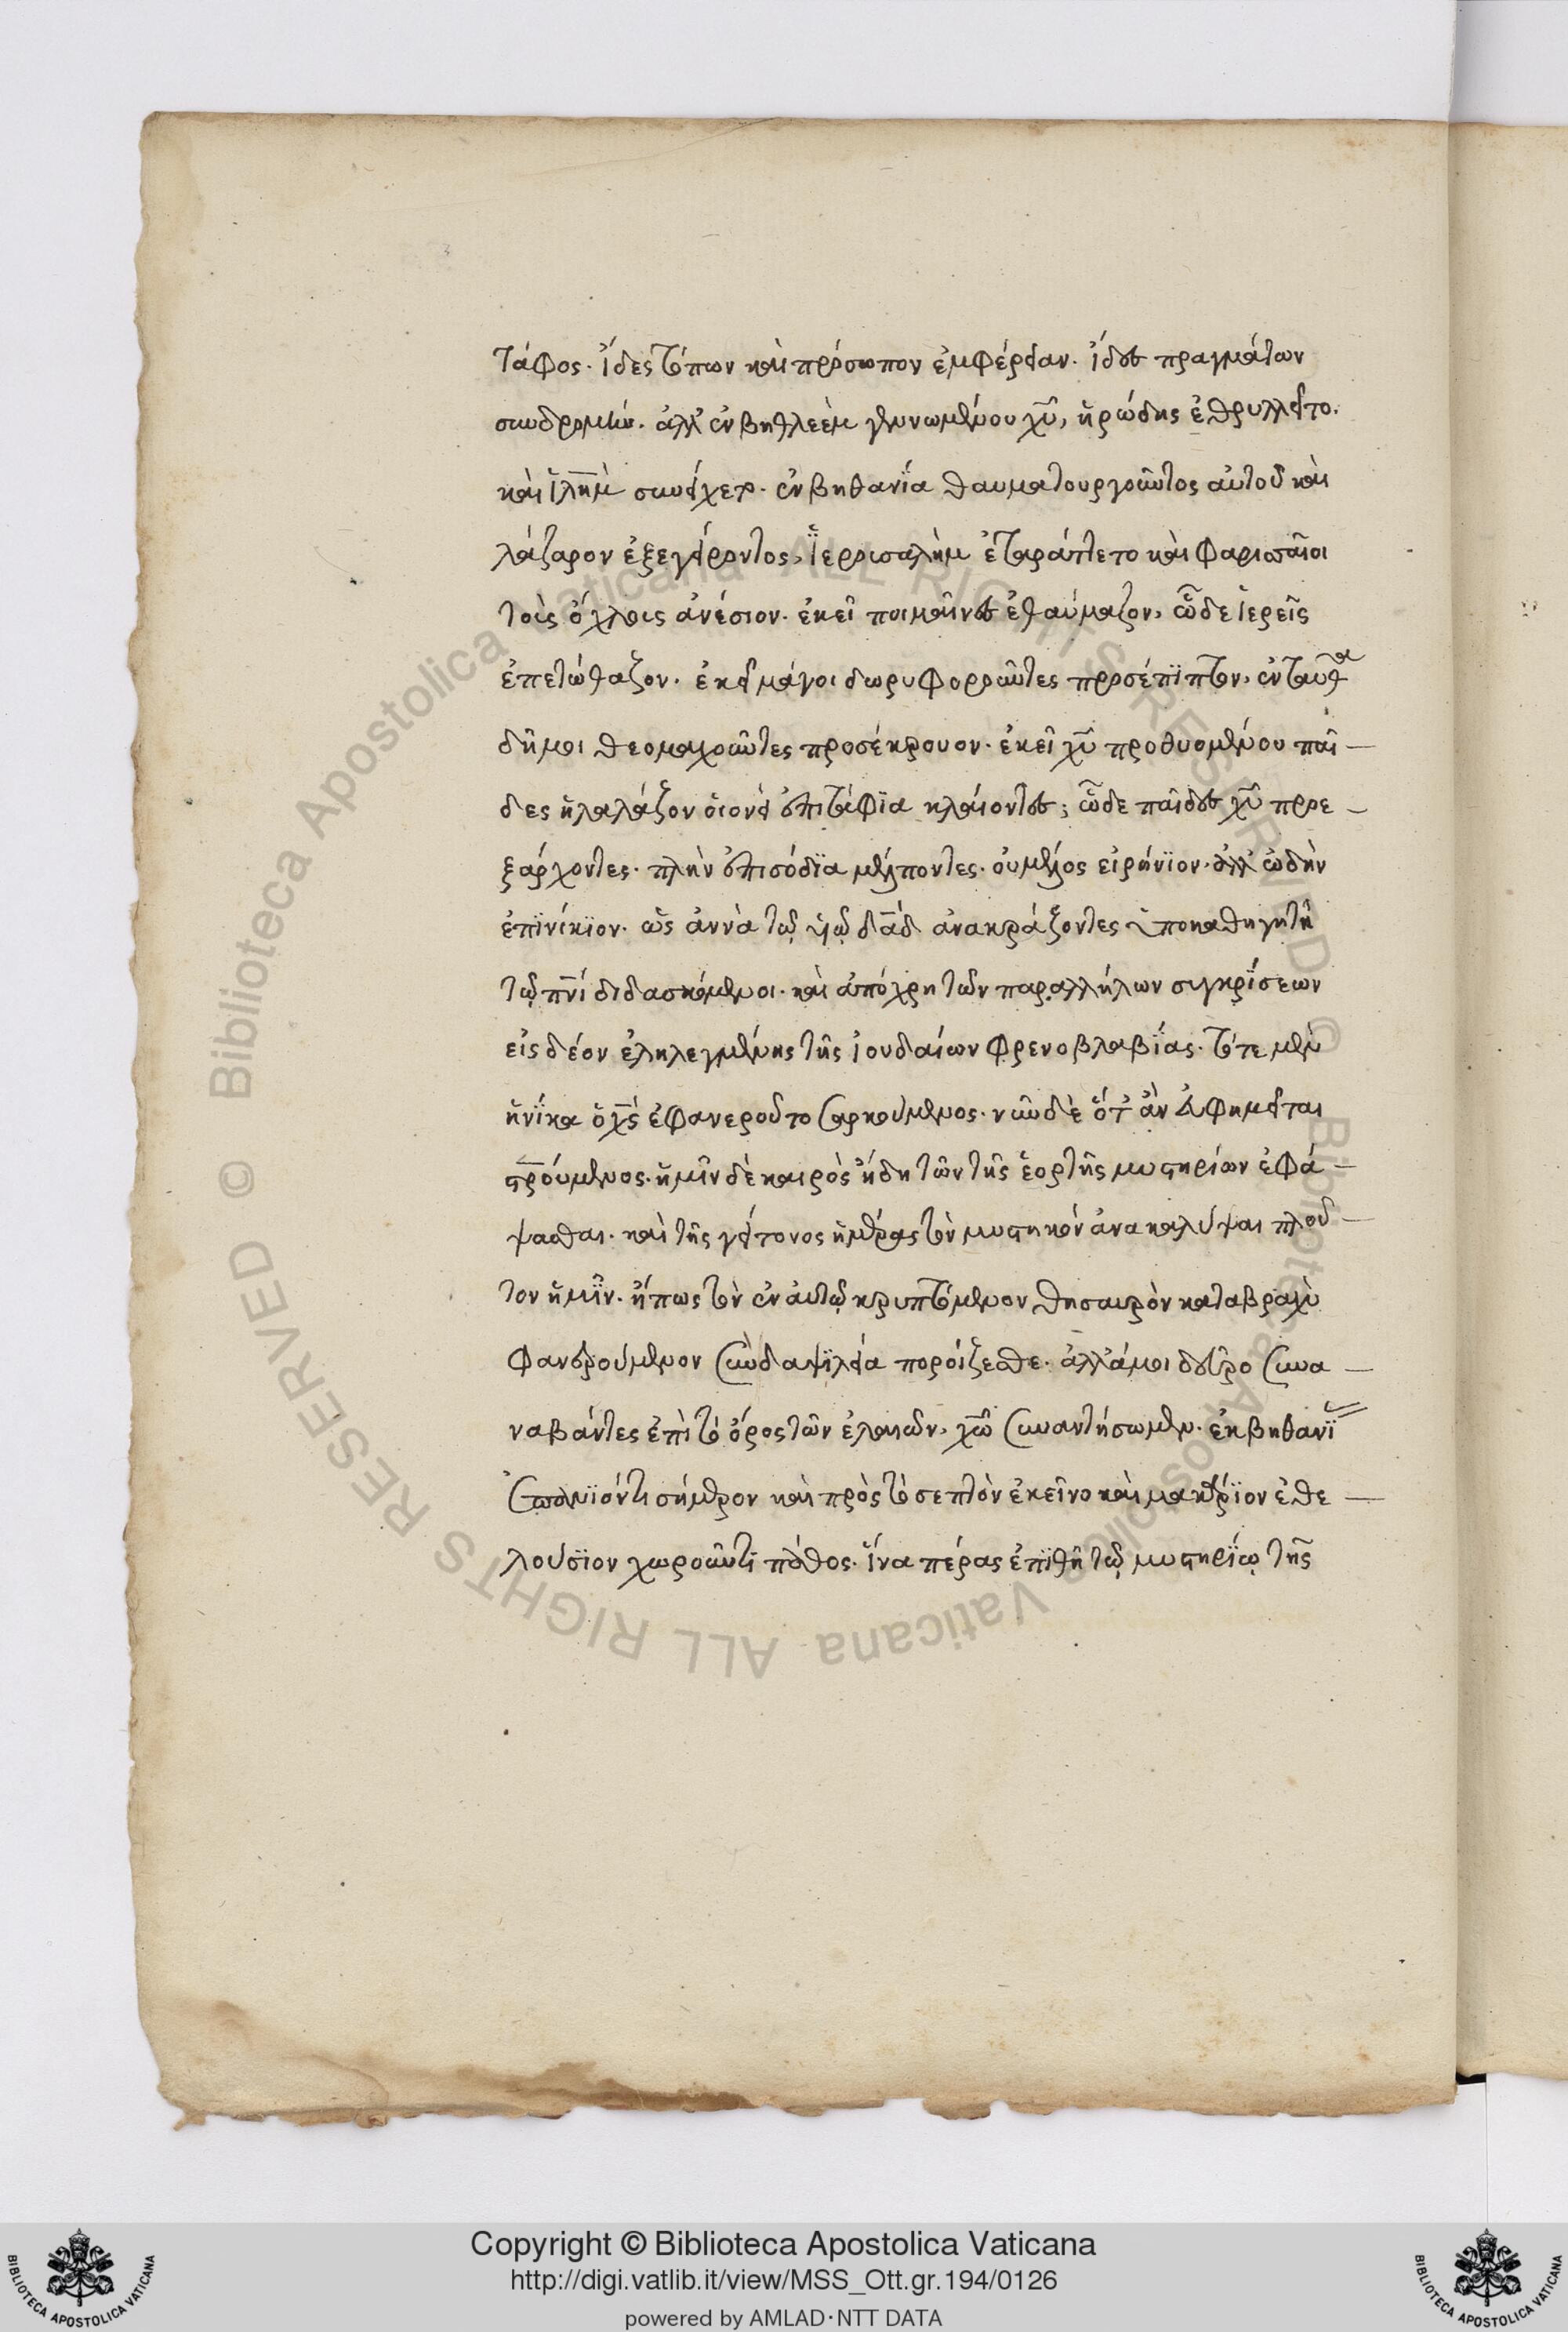 τάφος. ἴδες τόπων καὶ πρόσωπον ἐμφέρειαν. ἴδες πραγμάτων
συνδρομήν. ἀλλ' ἐν βηθλεὲμ γεννωμένου χῦ, ἡρώδης ἐθρυλλεῖτο.
καὶ ἱλημ συνείχετο. ἐν βηθανΐα θαυματουργοῦντος αὐτοῦ καὶ
λάζαρον ἐξεγείροντος, ἱερουσαλὴμ ἐταράττετο καὶ φαρισαῖοι
τοὺς ὄχλους ἀνέσιον. ἐκεῖ ποιμαῖνες ἐθαύμαζον, ὧδε ἱερεῖς
ἐπετώθαζον. ἐκεῖ μάγοι δωρυφοροῦντες προσέπϊπτον, ἐνταῦθα
δῆμοι θεομαχοῦντες προσέκρουον. ἐκεῖ χῦ προθυομένου παῖ-
δες ἠλαλάζον οἱονεὶ ἐπιτάφϊα κλαίοντες; ὧδε παῖδες χῦ προε-
ξάρχοντες. πλὴν ἐπισόδϊα μέλποντες. οὐ μέλος εἰρήνϊον. ἀλλ' ὠδὴν
ἐπϊνίκϊον. ὡς ἀννὰ τῷ υἱῷ δαδ ἀνακράζοντες ὑποκαθηγητῇ
τῷ πνι διδασκόμενοι. καὶ ἀπόχρη τῶν παραλλήλων συγκρίσεων
εἰς δέον ἐληλεγμένης τῆς ἰουδαίων φρενοβλαβΐας. τότε μὲν
ἡνΐκα ὁ χς ἐφανεροῦτο σαρκούμενος. νῦν δὲ ὅτ' ἂν εὐφημεῖται
σρούμενος. ἡμῖν δὲ καιρὸς ἤδη τῶν τῆς ἑορτῆς μυστηρίων ἐφά-
ψασθαι. καὶ τῆς γείτονος ἡμέρας τὸν μυστικὸν ἀνακαλύψαι πλοῦ-
τον ἡμῖν. ἤπως τὸν ἐν αὐτῷ κρυπτόμενον θησαυρὸν καταβραχὺ
φανερούμενον σὺν δαψϊλεία πορΐζεσθε. ἀλλ' ἄμοι δεῦρο συνα-
ναβάντες ἐπὶ τὸ ὄρος τῶν ἐλαιῶν, χῶ συναντήσωμεν. ἐκ βηθανΐ
ἐπανϊόντι σήμερον καὶ πρὸς τὸ σεπτὸν ἐκεῖνο καὶ μακάρϊον ἐθε-
λούσϊον χωροῦντι πάθος. ἵνα πέρας ἐπϊθῇ τῷ μυστηρΐῳ τῆς
Copyright © Biblioteca Apostolica Vaticana
http://digi.vatlib.it/view/MSS_Ott.gr.194/0126
powered by AMLAD·NTT DATA